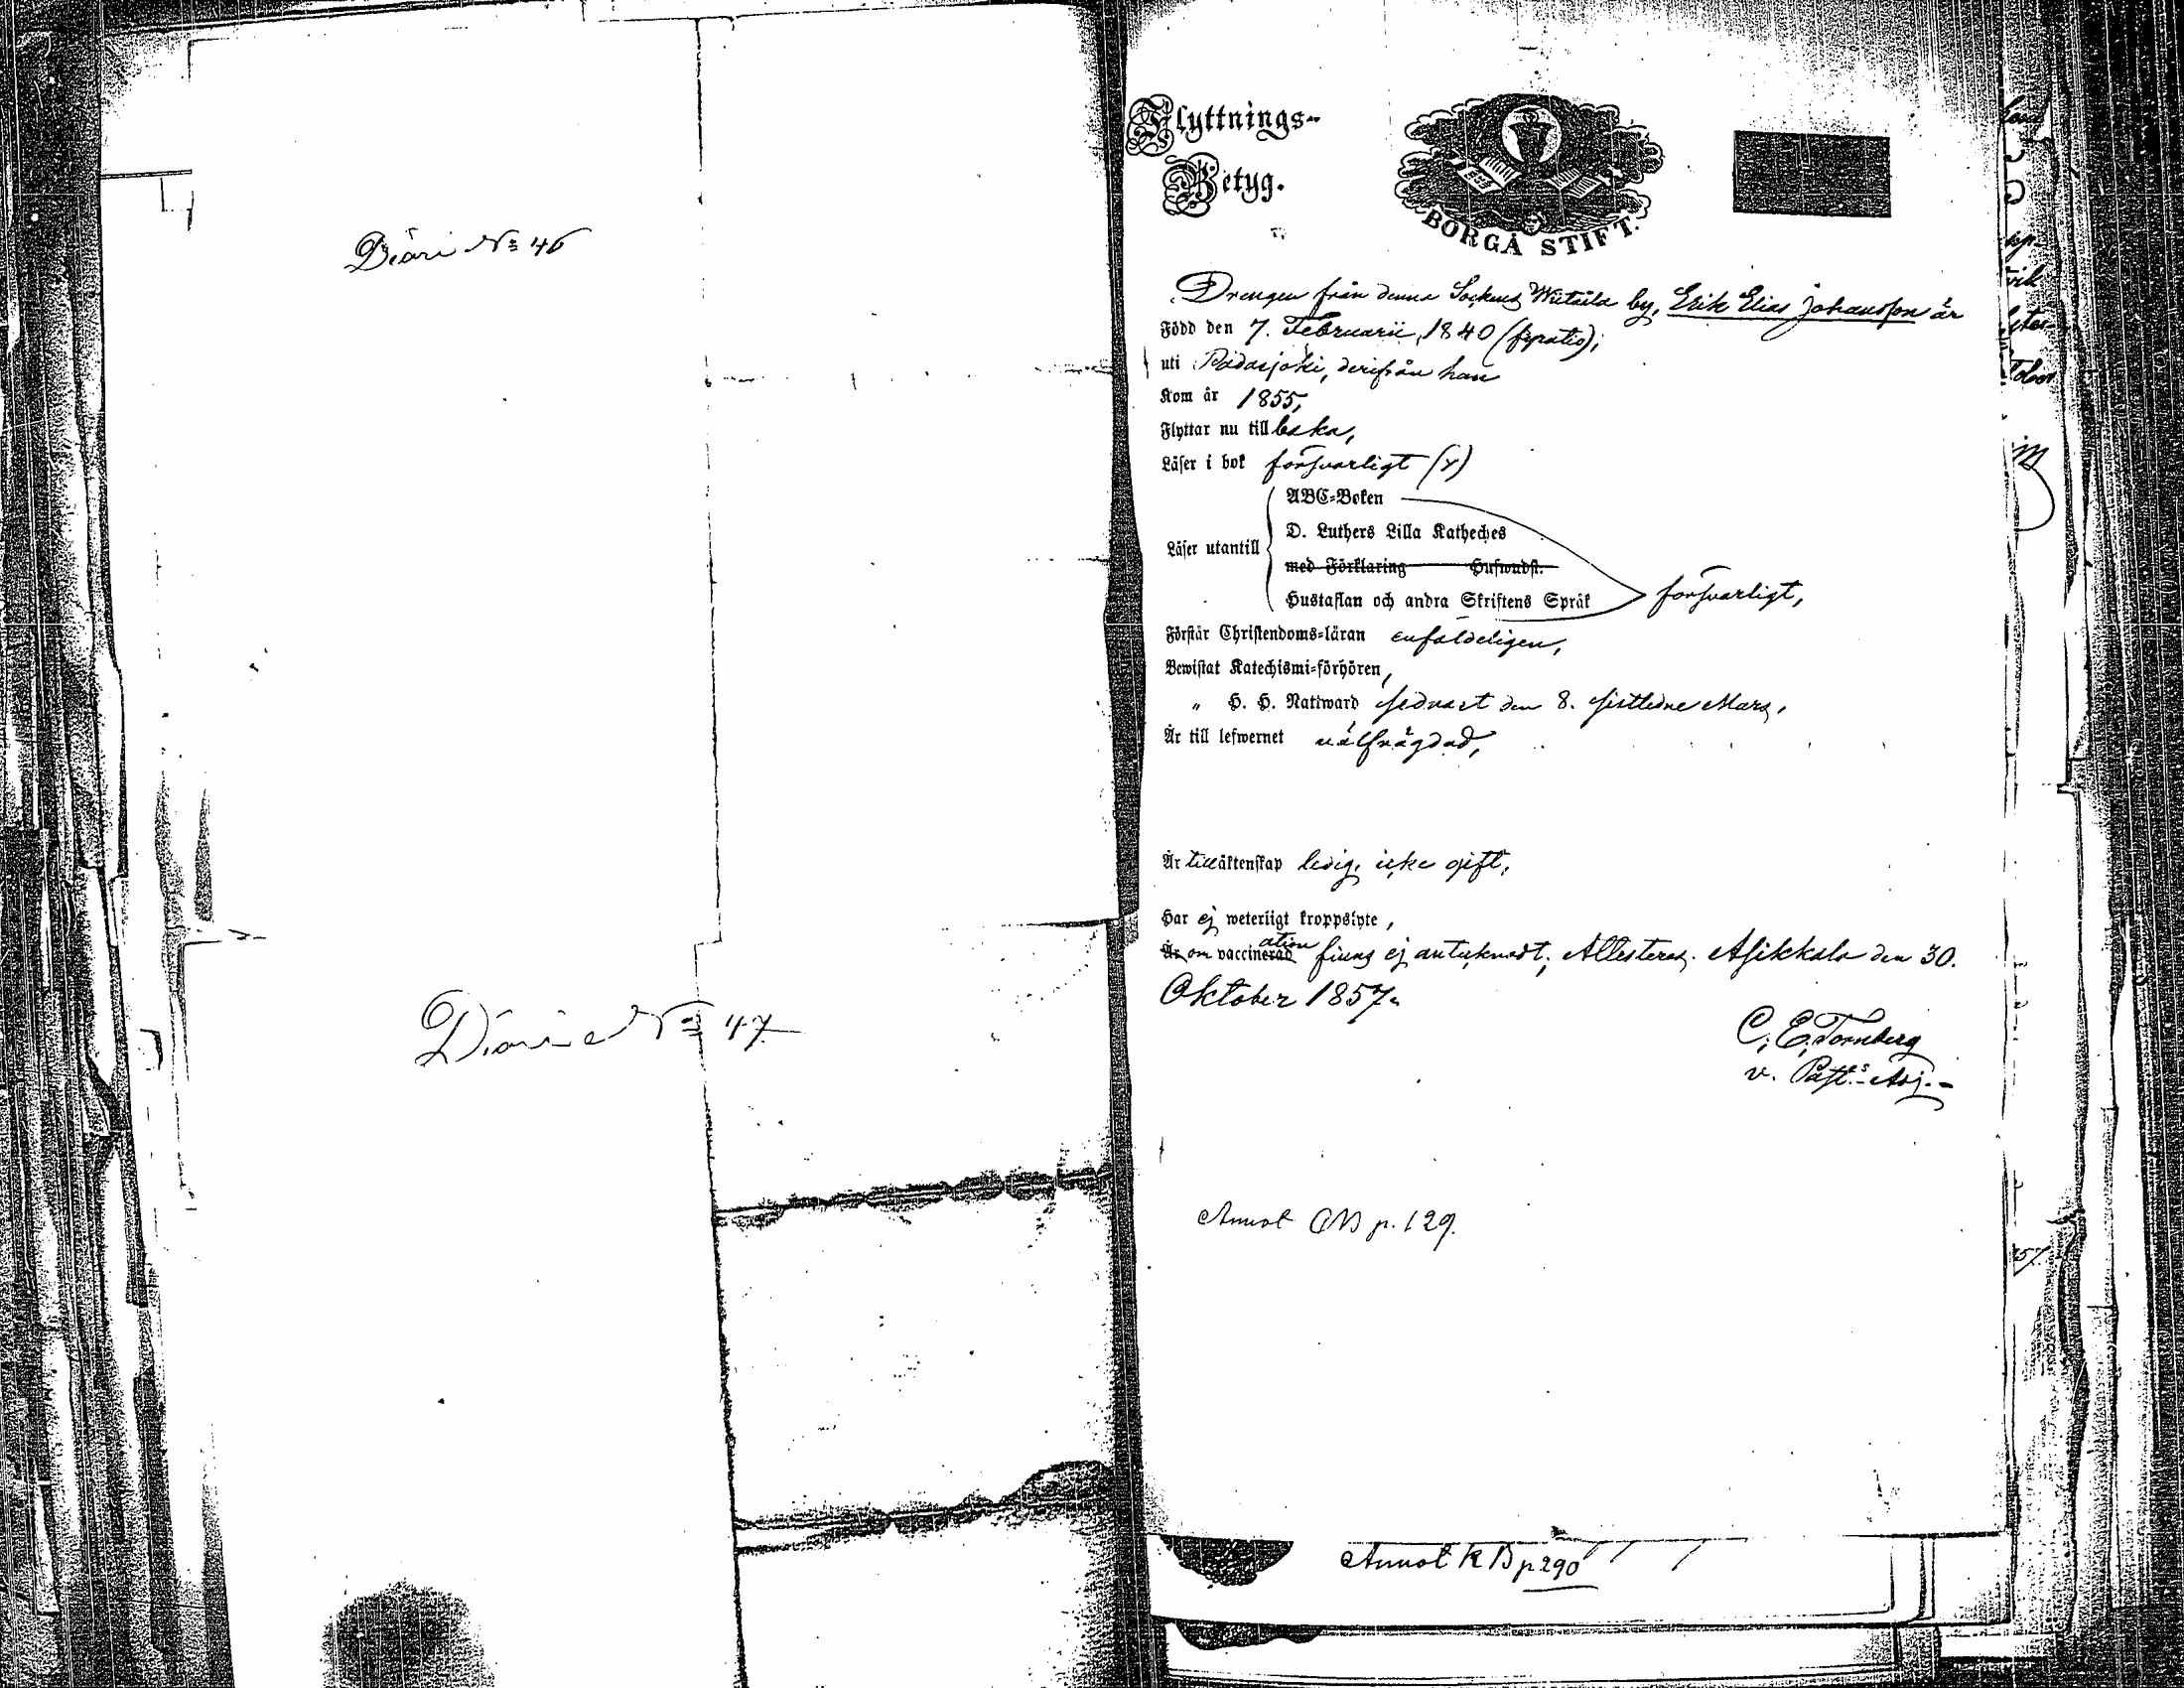 Diari № 46
Diarie № 47
Flyttnings-
Betyg.
BORGÅ STIFT.
Drengen från denna Sockens by, Erik Elias Johansson är
Född den 7. Februarii, 1840
uti Padasjoki, derifrån han
Kom år 1855,
Flyttar nu till
Läser i bok försvarligt
ABC-Boken
D. Luthers Lilla Katheches
Läser utantill
med Förklaring Huswudst.
Hustaflan och andra Skriftens Språk försvarligt,
Förstår Christendoms-läran enfaldeligen,
Bewistat Katechismi-förhören,
" H. H. Nattward sednast den 8. sistledne Mars,
Är till lefwernet välfrägdad,
Är till äktenskap ledig, icke gift,
Har ej weterligt kroppslyte,
Är om vaccinerad ation finns ej antecknadt; Attesteras. Asikkala den 30.
Oktober 1857.
C. E. Tornberg
v. Past.s Adj.
Annot CB p. 129.
Annot KB p 290
57.